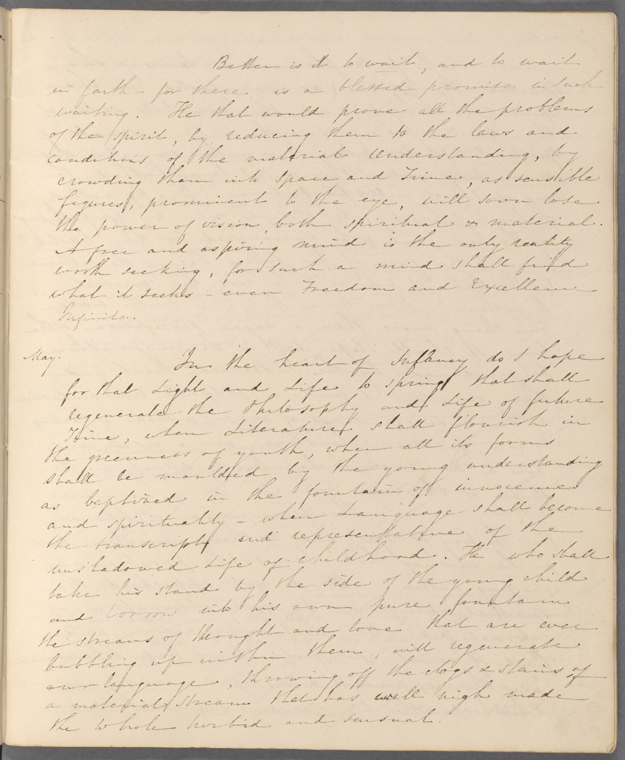 Better is it to wait, and to wait
in faith - for there is a blessed promise in such
waiting. He that would prove all the problems
of the Spirit, by reducing them to the laws and
conditions of the material Understanding, by
crowding them into Space and Time, as sensible
figures, prominent to the eye, will soon lose
the power of vision, both spiritual & material.
A free and aspiring mind is the only reality
worth seeking, for such a mind shall find
what it seeks - even Freedom and Excellence
Infinite.
May. In the heart of Infancy do I hope
for that Light and Life to spring that shall
regenerate the Philosophy and Life of future
Time, when Literature shall flourish in
the greenness of youth, when all its forms
shall be moulded by the young understanding
as baptized in the fountain of innocence
and spirituality - when Language shall become
the transcript and representative of the
unshadowed Life of Childhood. He who shall
take his stand by the side of the young child
and borrow into his own pure fountain
the streams of thought and love that are ever
bubbling up within them, will regenerate
our language, throwing off the clogs & stains of
a material stream that has well nigh made
the whole turbid and sensual.